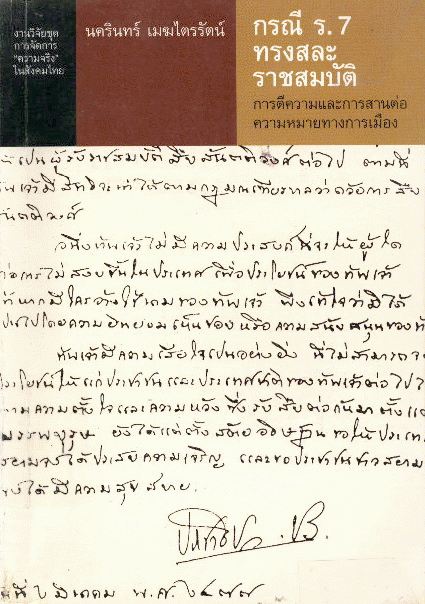 งานวิจัยชุด
การจัดการ
"ความจริง"
ในสังคมไทย
นครินทร์ เมฆไตรรัตน์
กรณี ร.7
ทรงสละ
ราชสมบัติ
การตีความและการสานต่อ
ความหมายทางการเมือง
เป็นผู้รับราชสมบัติสืบสันตติวงศ์ต่อไป ตามที่
มีสิทธิจะทำได้ตามกฎมณเฑียรบาลว่าด้วยการสืบ
อนึ่งข้าพเจ้าไม่มีความประสงค์ที่จะให้ผู้ใด
ก่อการไม่สงบขึ้นในประเทศ เพื่อประโยชน์ของข้าพเจ้า
ถ้าหากมีใครอ้างใช้นามของข้าพเจ้า พึงเข้าใจว่ามิได้
เป็นไปโดยความยินยอมเห็นชอบ หรือความสนับสนุนของ
ข้าพเจ้ามีความเสียใจเป็นอย่างยิ่ง ที่ไม่สามารถ
ประโยชน์ให้แก่ประชาชนและประเทศชาติของข้าพเจ้าต่อไป
ความตั้งใจและความหวัง ซึ่งรับสืบต่อกันมาตั้งแต่
ยังได้แต่ตั้งสัตยอธิษฐาน ขอให้ประเทศ
สยามจงได้ประสบความเจริญ และขอประชาชนชาวสยาม
จงได้มีความสุขสบาย.
ประชาธิปก ปร.
มีนาคม พ.ศ. ๒๔๗๗